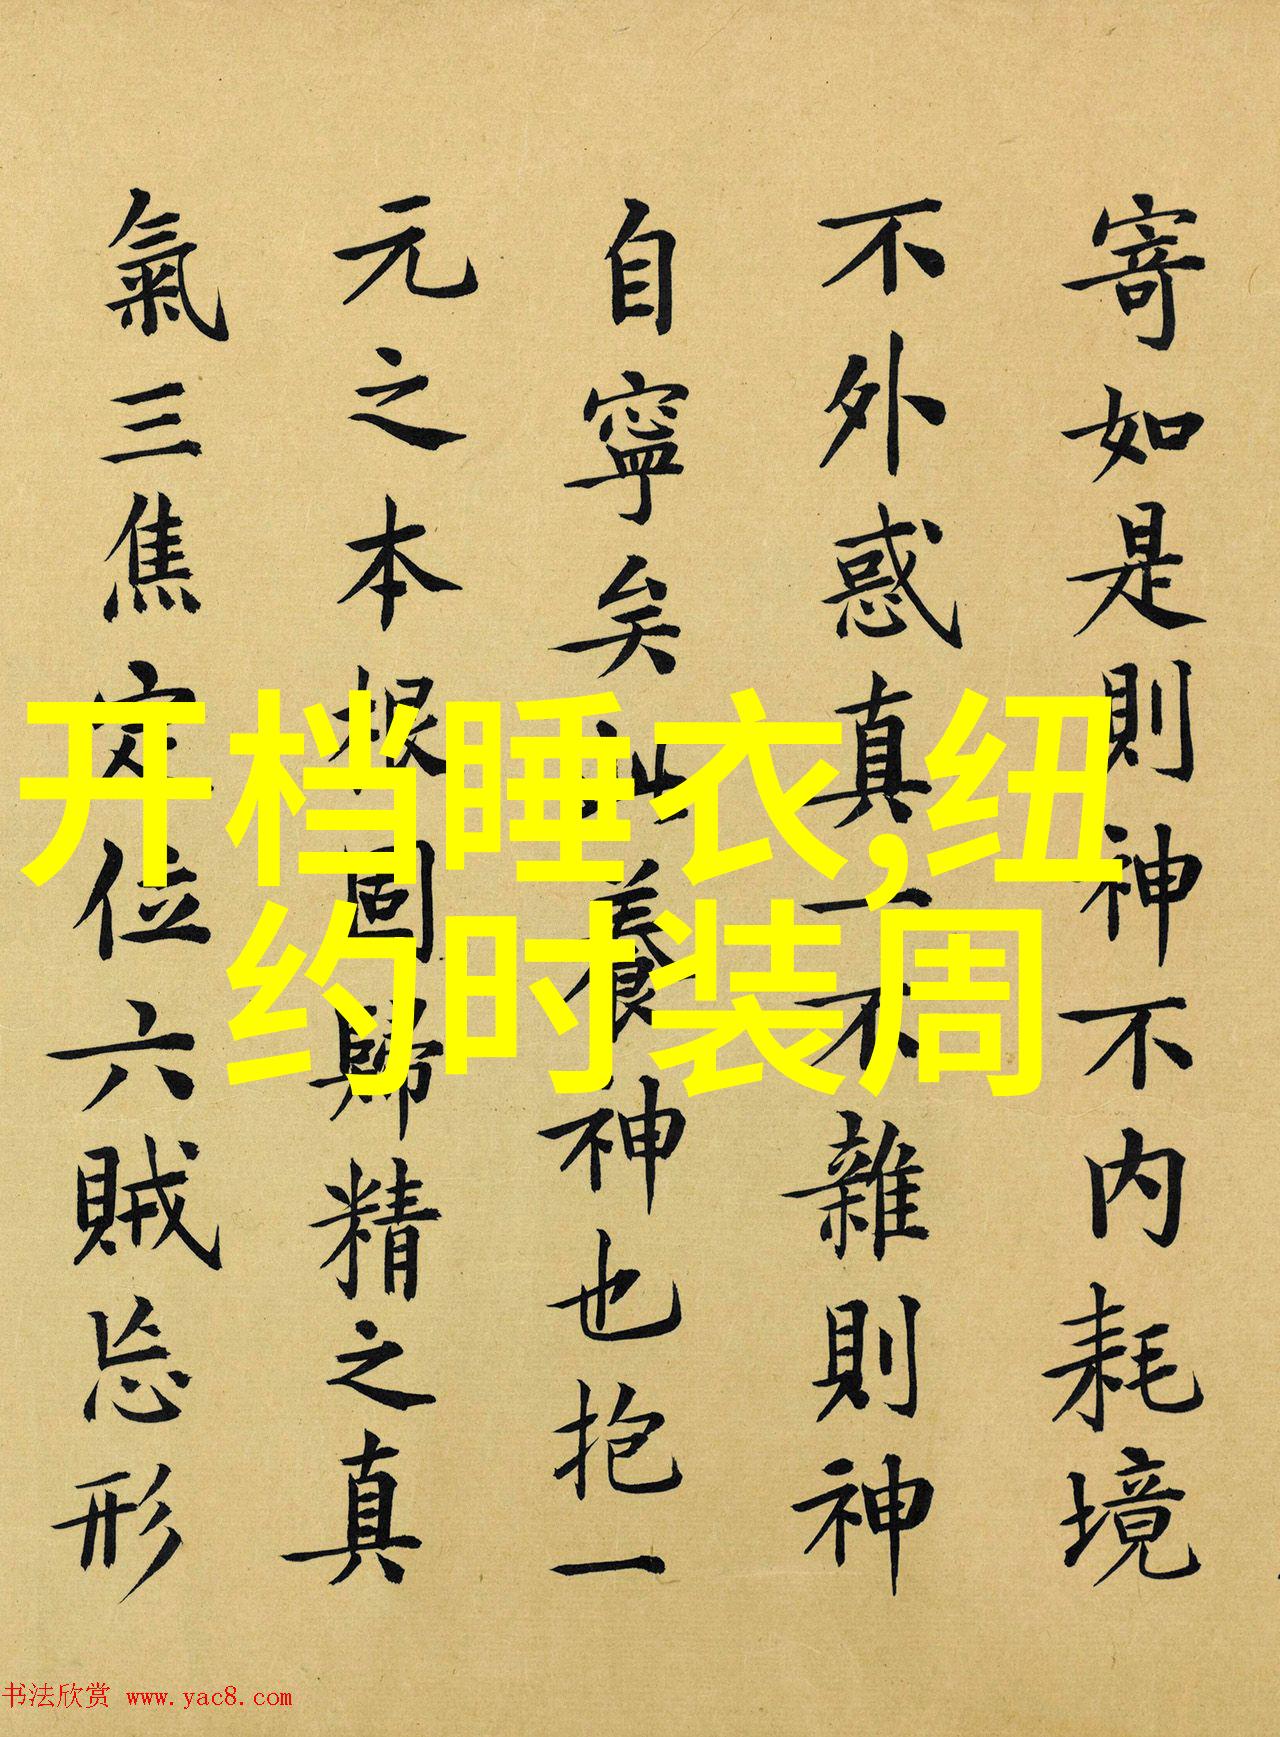 寄如是則神不内耗境
不外惑真一不雜則神
自寧矣此養神也抱一
元之本根固歸精之真
氣三焦定位六賊忘形
开档睡衣,纽
约时装周
书法欣赏 www.yac8.com